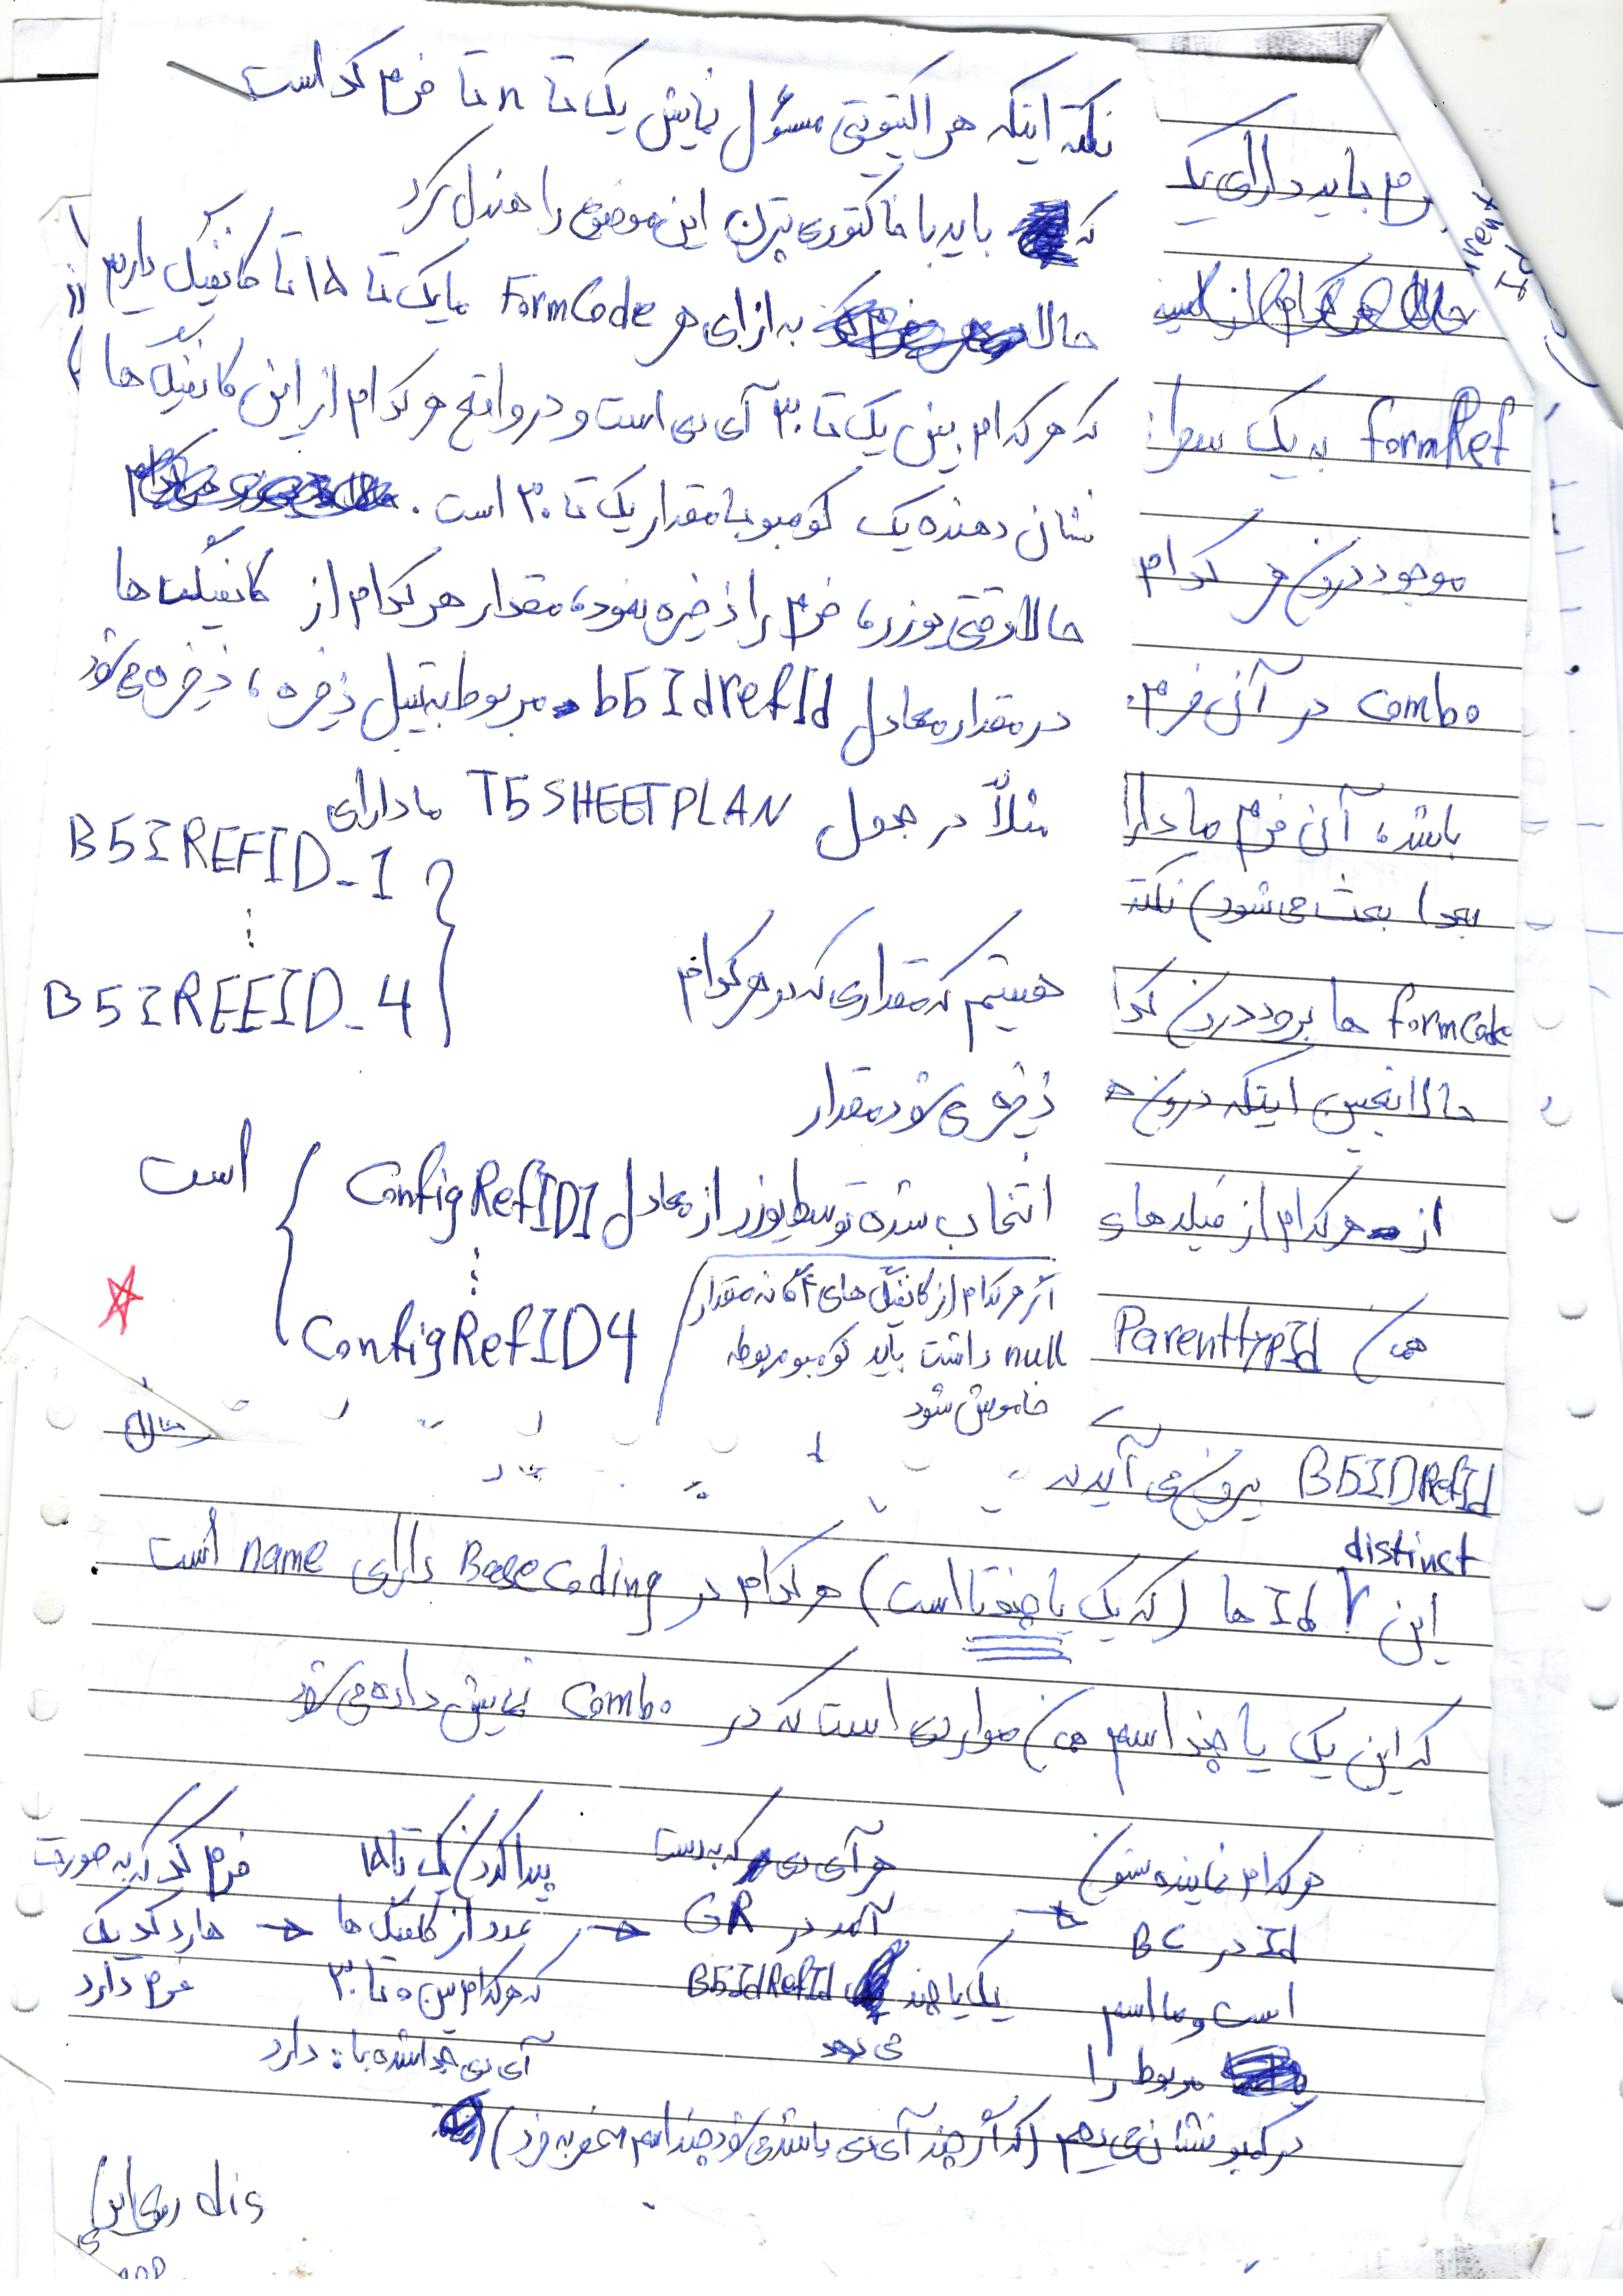 نکته اینکه هر اکتیویتی مسئول نمایش یک تا n تا فرم کد است
که باید با فاکتوری پترن این موضوع را هندل کرد
حالا به ازای هر FormCode ما یک تا ۱۵ تا کانفیگ داریم
که هر کدام بین یک تا ۳۰ آی دی است و در واقع هر کدام از این کانفیگ ها
نشان دهنده یک کومبو با مقدار یک تا ۳۰ است.
حالا وقتی یوزر، فرم را ذخیره نمود، مقدار هر کدام از کانفیگ ها
در مقدار معادل b5IdrefId مربوط به تیبل ذخیره، ذخیره می شود
مثلاً در جدول T5SHEETPLAN ما دارای
B5IREFID_1
B5IREFID_4
هستیم که مقداری که در هر کدام
ذخیره می شود مقدار
انتخاب شده توسط یوزر از معادل ConfigRefID1
ConfigRefID4
است
اگر هر کدام از کانفیگ های ۴ گانه مقدار
null داشت باید کومبو مربوطه
خاموش شود
فرم باید دارای یک
formRef به یک سری از
موجود درون هر کدام
combo در آن فرم
باشد، آن فرم ما دارا
بعدا بحث می شود) نکته
formCode ها برود درون کد
حالا ایجس اینکه درون ه
از هر کدام از فیلدهای
همان ParenttypId
B5IDRefId بیرون می آید که
distinct
این Id ها (که یک یا چند تا است) هر کدام در BaseCoding دارای name است
که این یک یا چند اسم همان مواردی است که در Combo نمایش داده می شود
فرم کد که به صورت
هارد کد یک
فرم دارد
→
پیدا کردن یک تا ۱۵
عدد از کانفیگ ها
که هر کدام بین ۰ تا ۳۰
آی دی جدا شده با : دارد
→
هر آی دی که به دست
آمد در GR
یک یا چند B5IdRefId
می دهد
→
هر کدام نماینده ستون
Id در BC
است و ما اسم
مربوط را
در کمبو نشان می دهیم (که اگر چند آی دی باشد می شود چند اسم منحصر به فرد)
dis روی این